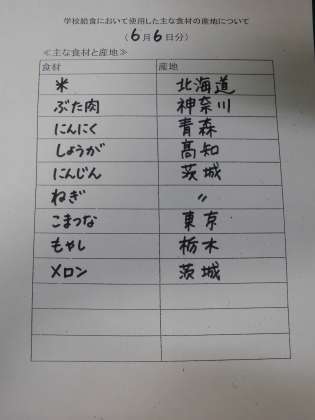 学校給食において使用した主な食材の産地について
(6月6日分)
≪主な食材と産地≫
食材 産地
米 北海道
ぶた肉 神奈川
にんにく 青森
しょうが 高知
にんじん 茨城
ねぎ 〃
こまつな 東京
もやし 栃木
メロン 茨城